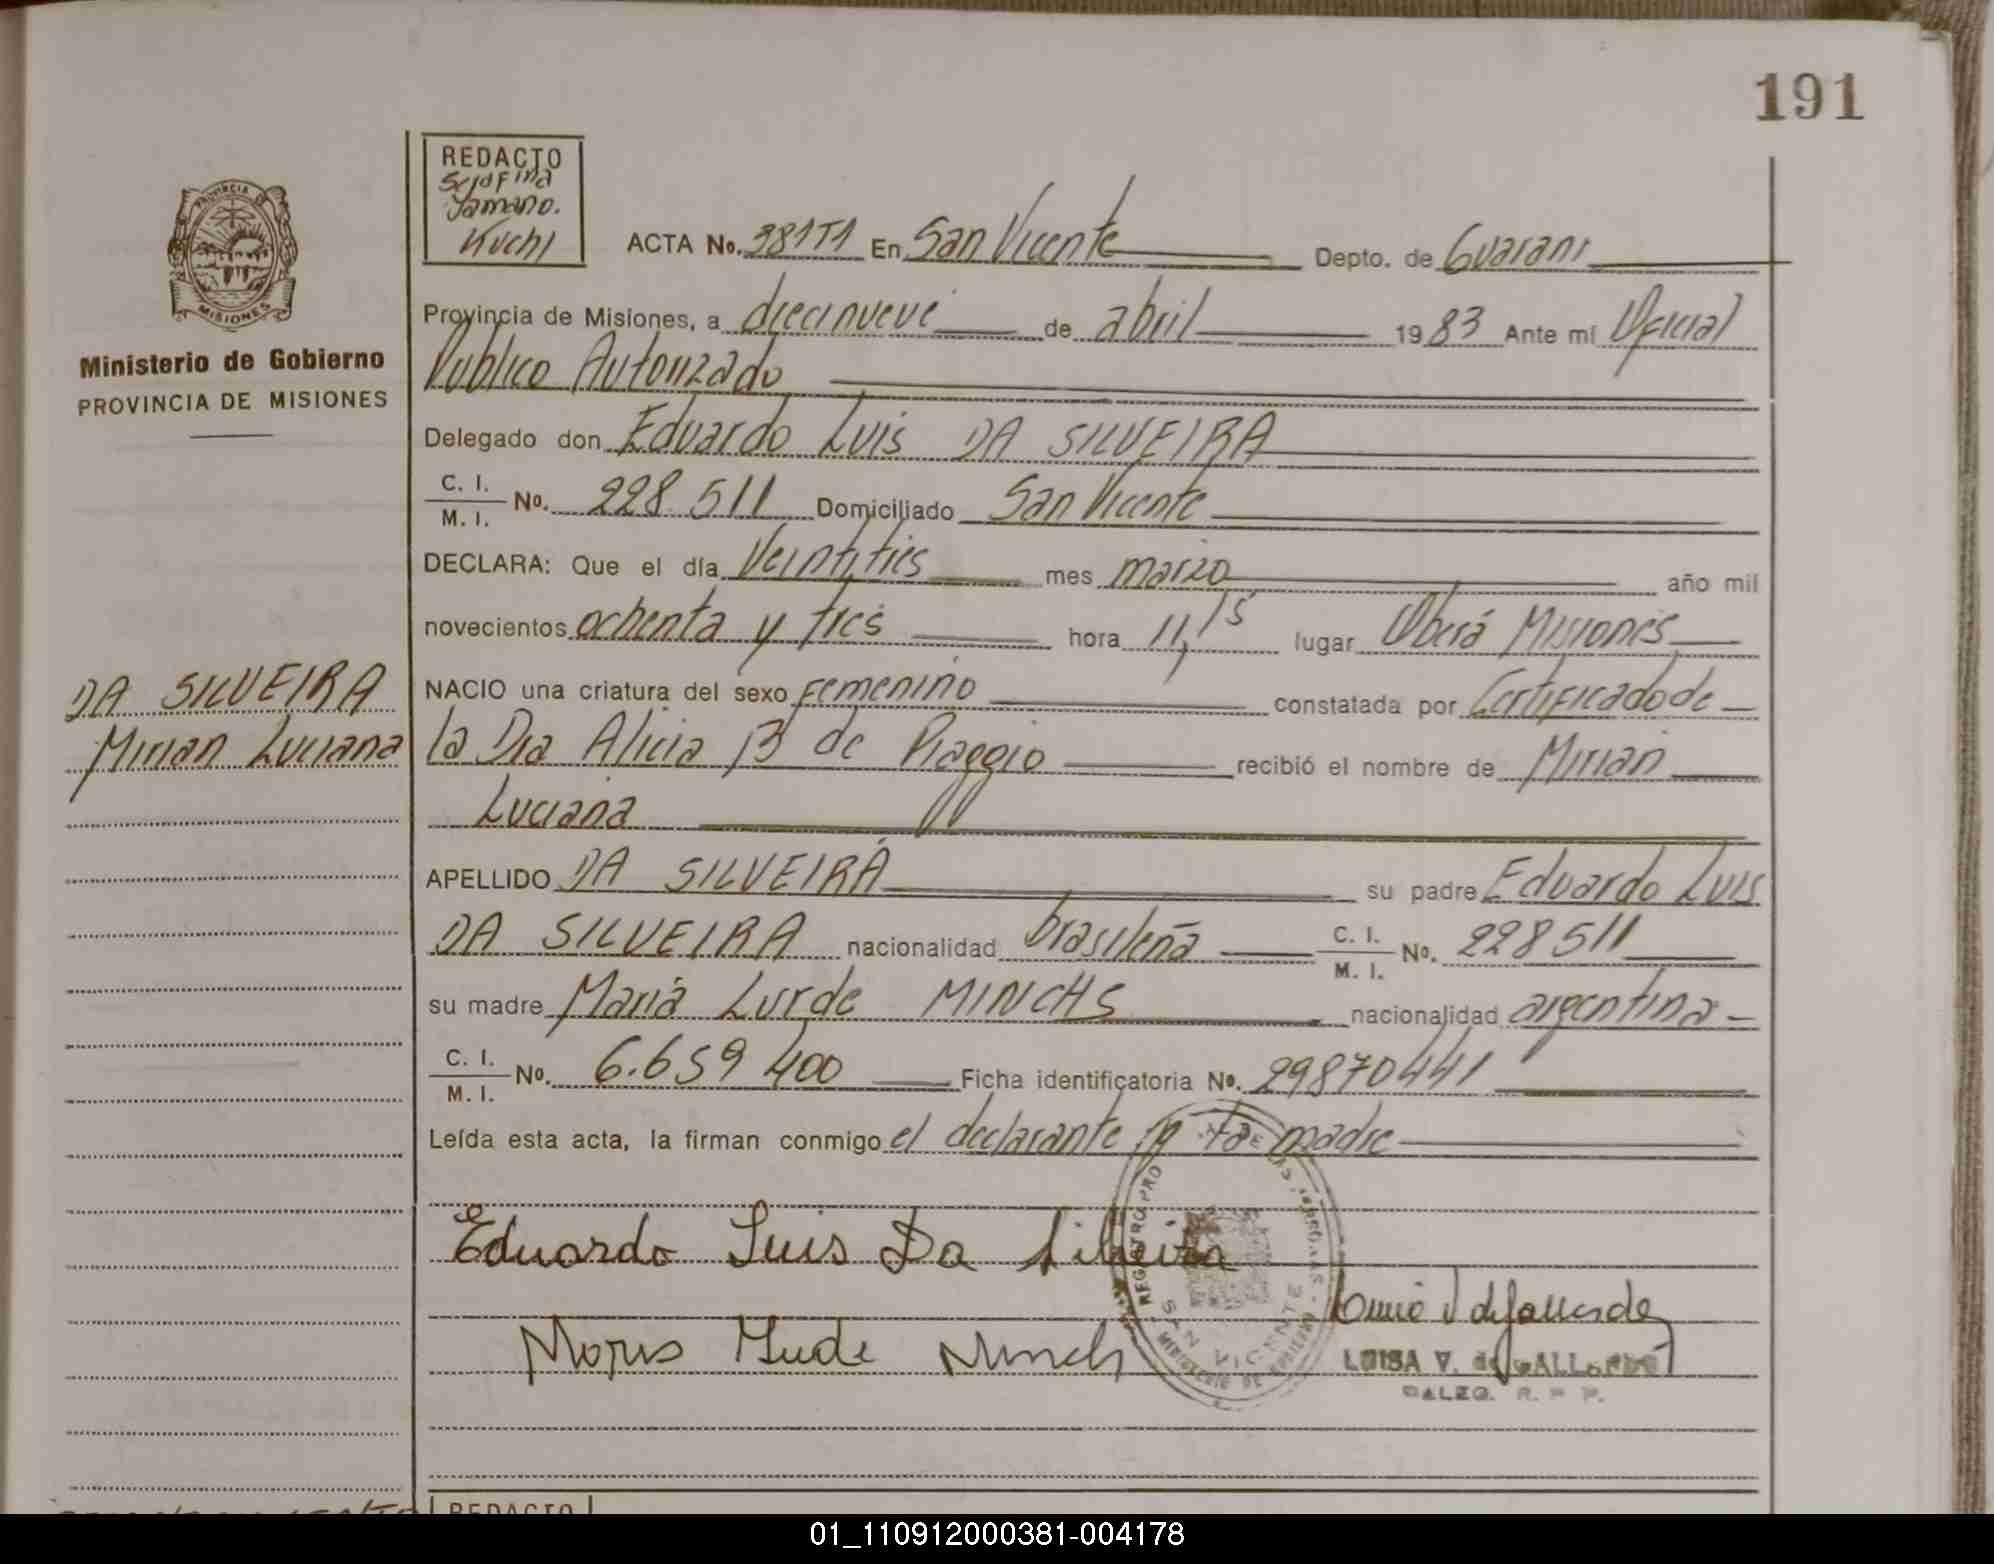 191
REDACTO
Serafina
Tamaño.
Kuchl
ACTA No. 381T1 En San Vicente Depto. de Guarani
PROVINCIA DE
MISIONES
Ministerio de Gobierno
PROVINCIA DE MISIONES
Provincia de Misiones, a diecinueve de abril 1983 Ante mí Oficial
Publico Autorizado
Delegado don Eduardo Luis DA SILVEIRA
C. I.
M. I. No. 228.511 Domiciliado San Vicente
DECLARA: Que el día Veintitres mes marzo año mil
novecientos ochenta y tres hora 11,15 lugar Oberá Misiones
DA SILVEIRA
Mirian Luciana
NACIO una criatura del sexo Femenino constatada por Certificado de
la Dra Alicia B de Piaggio recibió el nombre de Mirian
Luciana
APELLIDO DA SILVEIRA su padre Eduardo Luis
DA SILVEIRA nacionalidad brasileña C. I.
M. I. No. 228511
su madre Maria Lurde MINCHS nacionalidad argentina
C. I.
M. I. No. 6.659 400 Ficha identificatoria No. 29870441
Leída esta acta, la firman conmigo el declarante y la madre
Eduardo Luis Da Silveira
REGISTRO PRO
SAN VICENTE
LUISA V. de GALLARDO
REDACTO
01_110912000381-004178